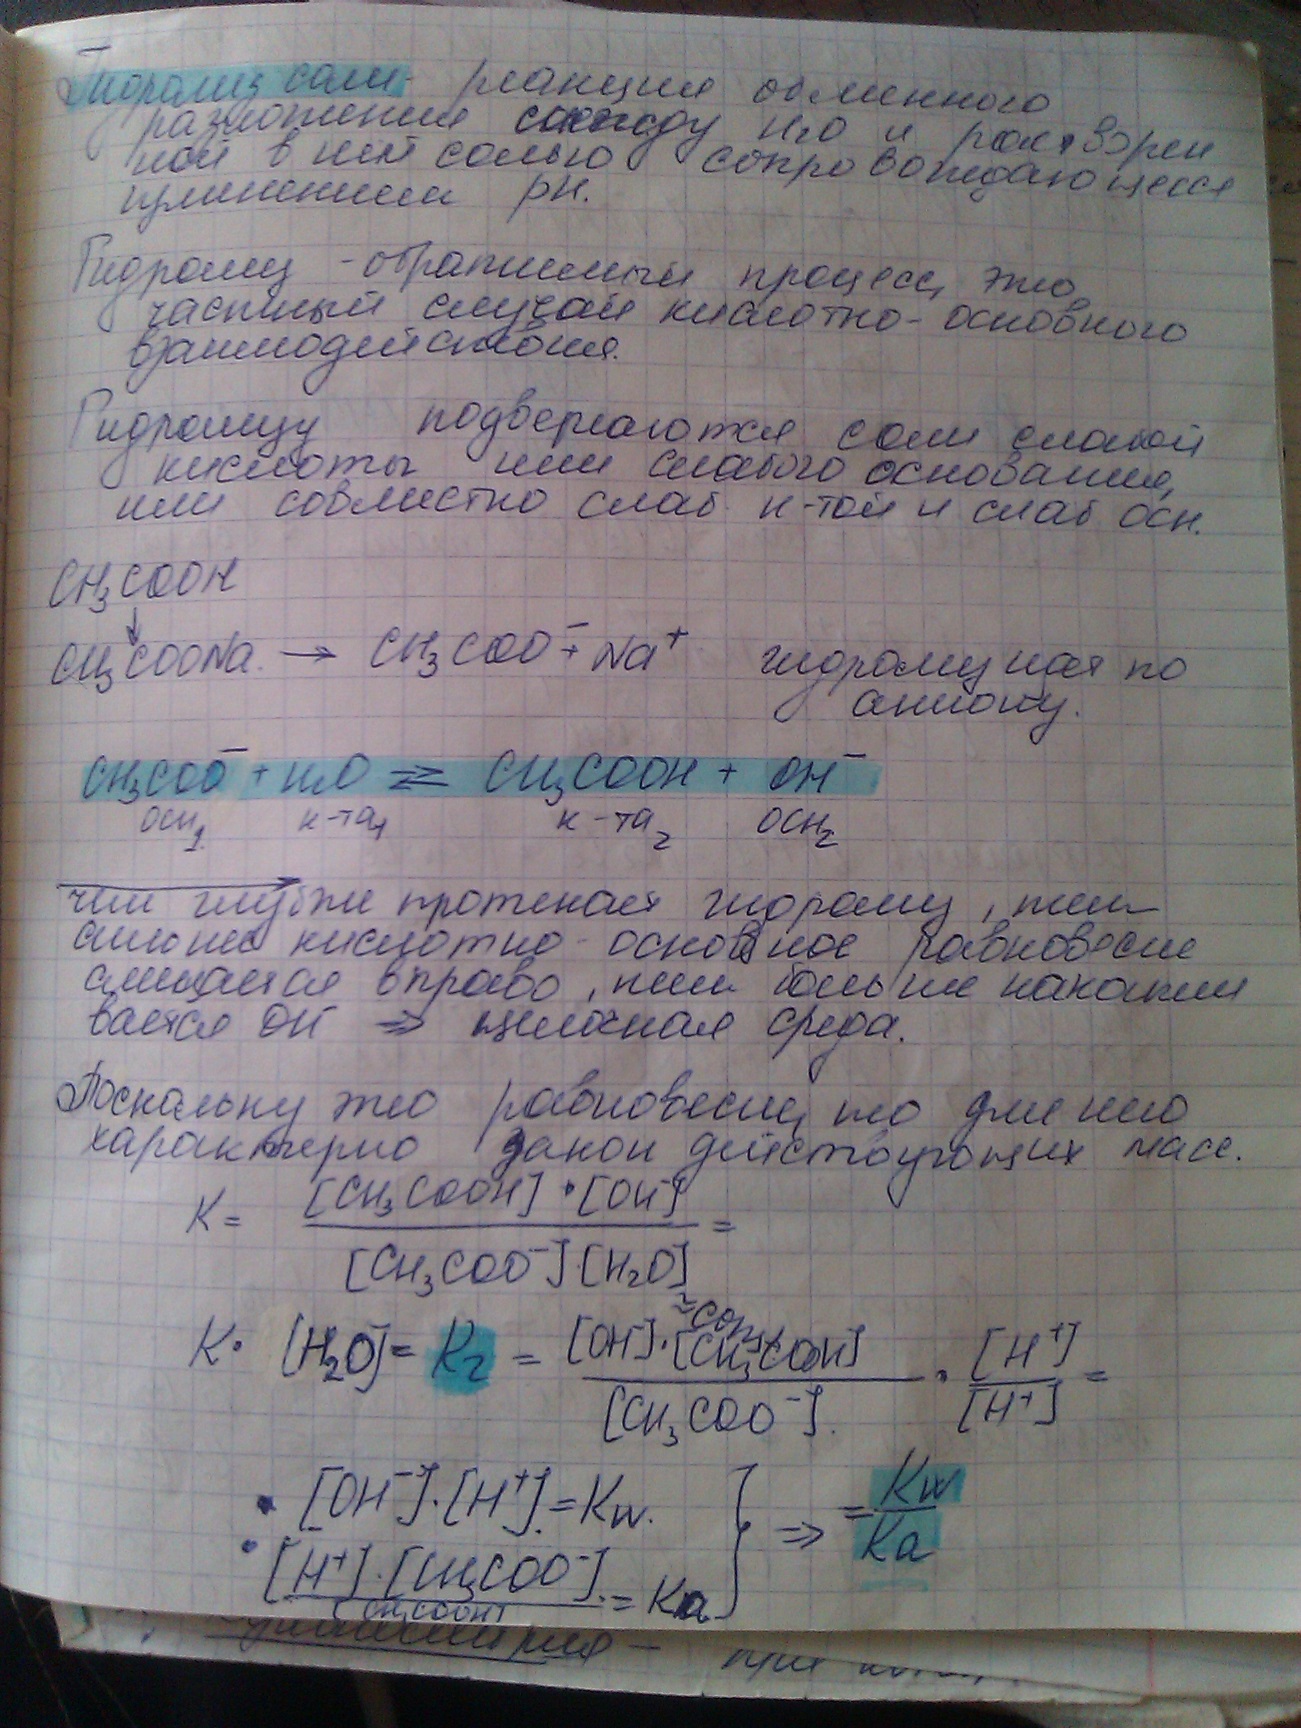 Гидролиз соли - реакция обменного
разложения между H2O и растворен
ной в ней солью сопровождающееся
изменением pH.
Гидролиз - обратимый процесс, это
частный случай кислотно-основного
взаимодействия.
Гидролизу подвергаются соли слабой
кислоты или слабого основания,
или совместно слаб. к-той и слаб осн.
CH3COOH
↓
CH3COONa → CH3COO⁻ + Na⁺ гидролиз идет по
аниону.
CH3COO⁻ + H2O ⇌ CH3COOH + OH⁻
осн1 к-та1 к-та2 осн2
чем глубже протекает гидролиз, тем
сильнее кислотно-основное равновесие
смещается вправо, тем больше накапли
вается OH⁻ ⇒ щелочная среда.
Поскольку это равновесие, то для него
характерно закон действующих масс.
K = [CH3COOH]·[OH⁻] / [CH3COO⁻]·[H2O] =
≈const
K·[H2O] = Kг = [OH⁻]·[CH3COOH] / [CH3COO⁻] · [H⁺] / [H⁺] =
• [OH⁻]·[H⁺] = Kw.
• [H⁺]·[CH3COO⁻] / [CH3COOH] = Ka } ⇒ = Kw / Ka